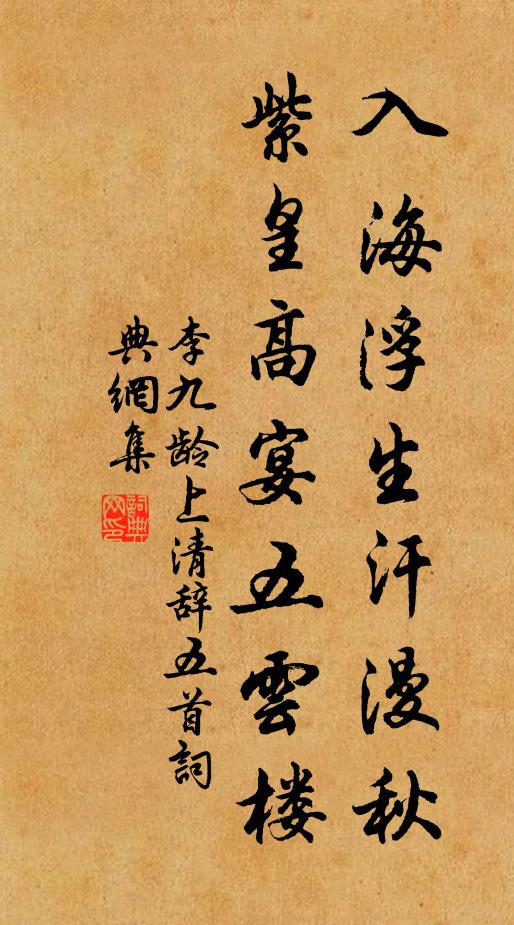 入海浮生汗漫秋
紫皇高宴五雲楼
李九龄上清辞五首詞
典網集
詞典
网印